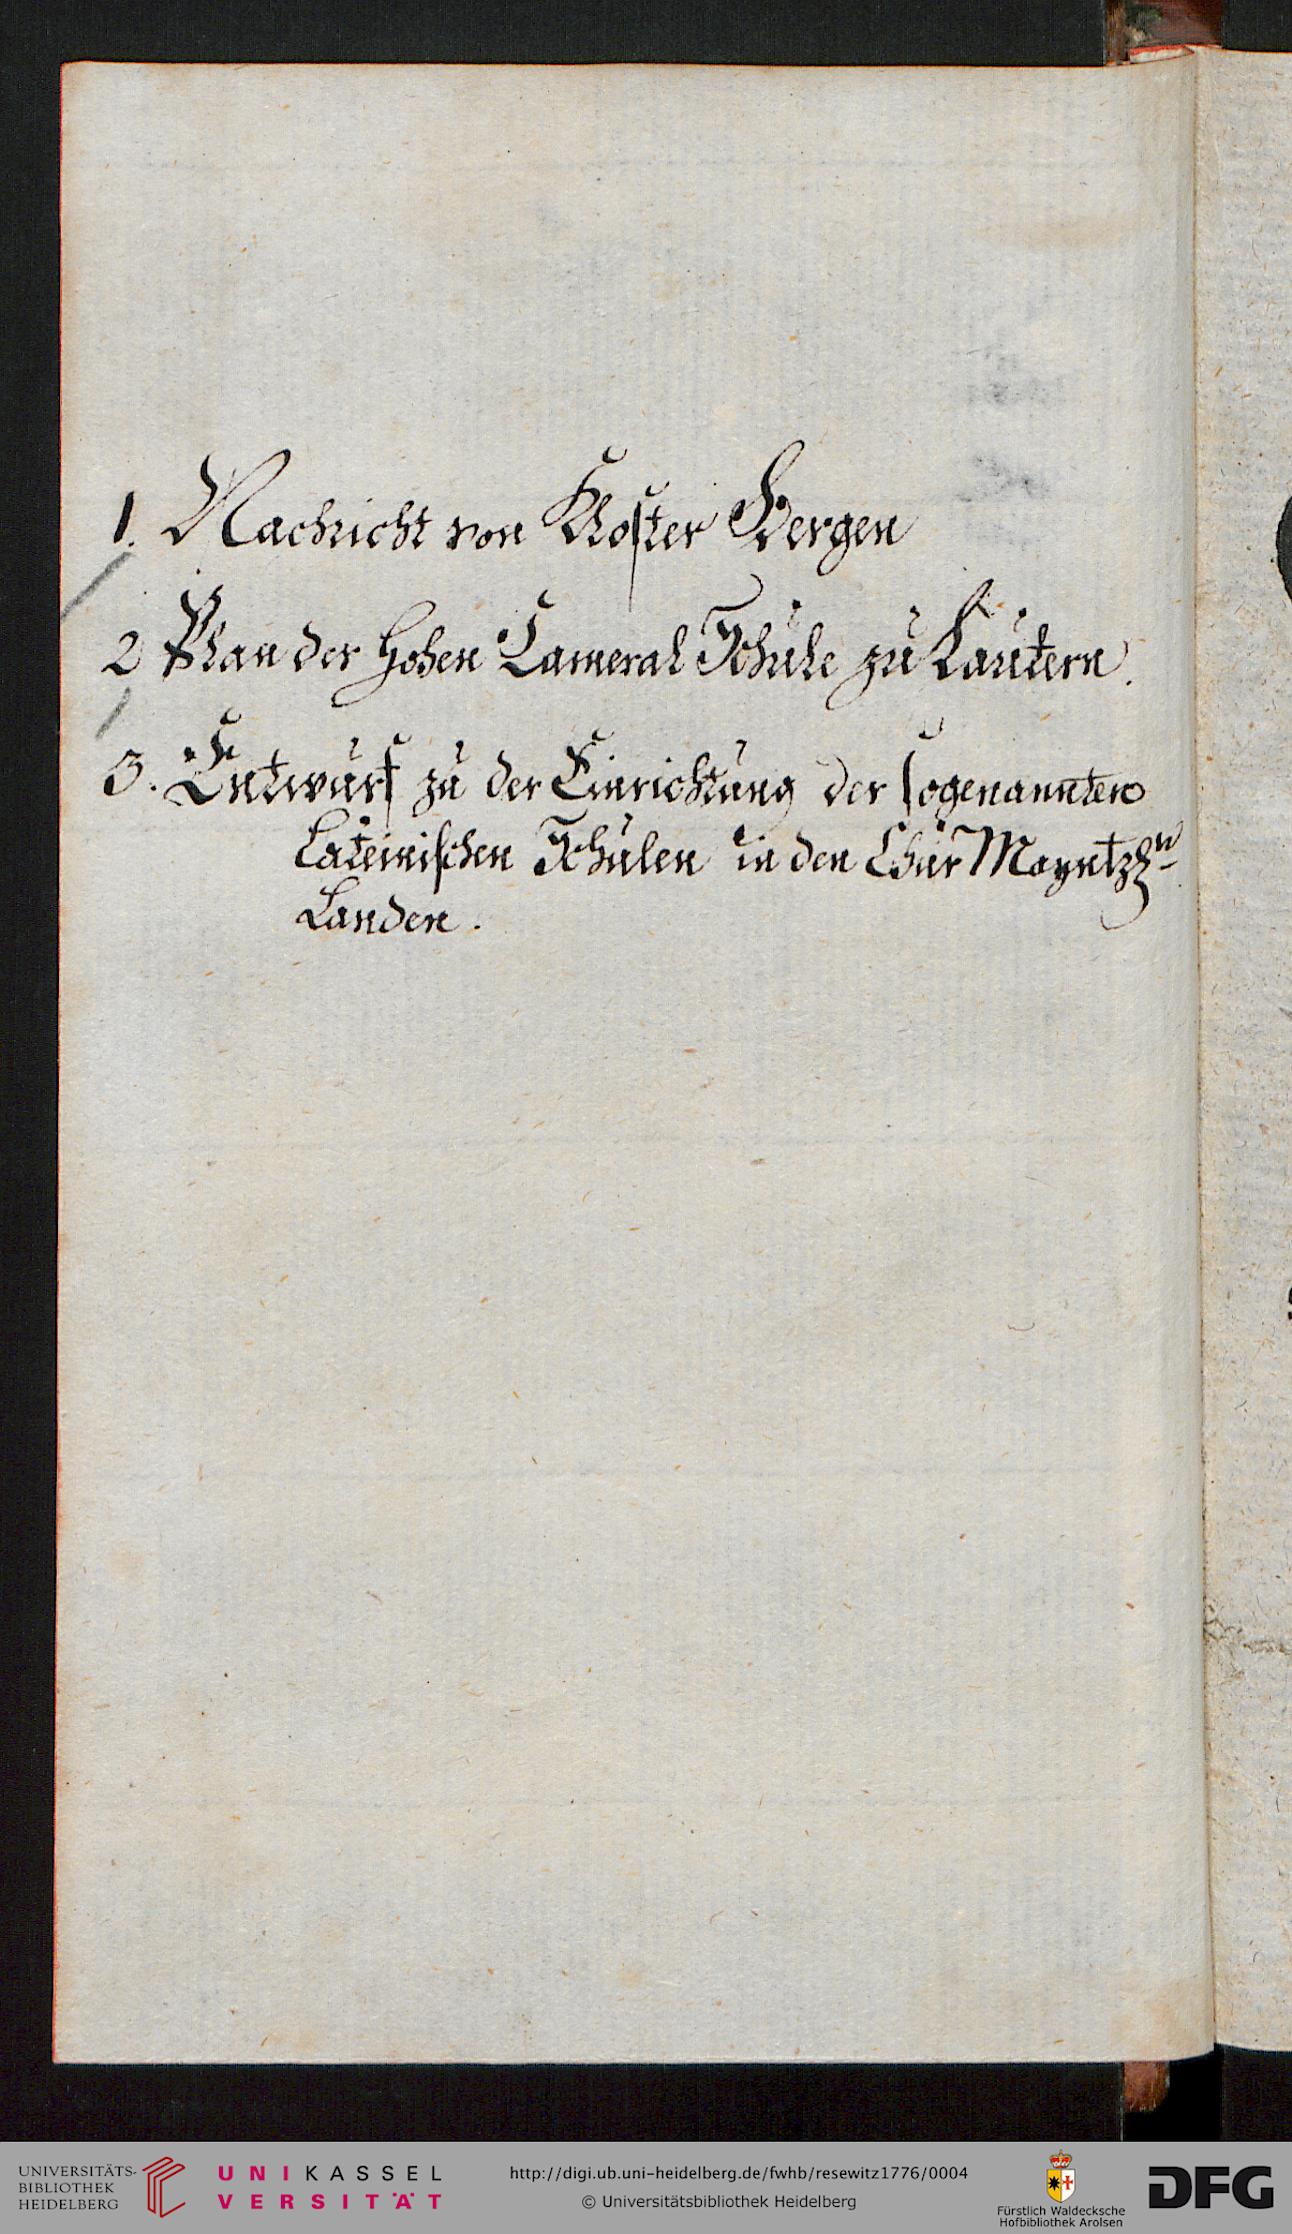 1. Nachricht von Kloster Bergen
2 Plan der hohen Cameral Schule zu Lautern.
3. Entwurf zu der Einrichtung der sogenannten
Lateinischen Schulen in den Chur Mayntzn
Landen.
UNIVERSITÄTS-
BIBLIOTHEK
HEIDELBERG
UNIKASSEL
VERSITÄT
http://digi.ub.uni-heidelberg.de/fwhb/resewitz1776/0004
© Universitätsbibliothek Heidelberg
Fürstlich Waldecksche
Hofbibliothek Arolsen
DFG